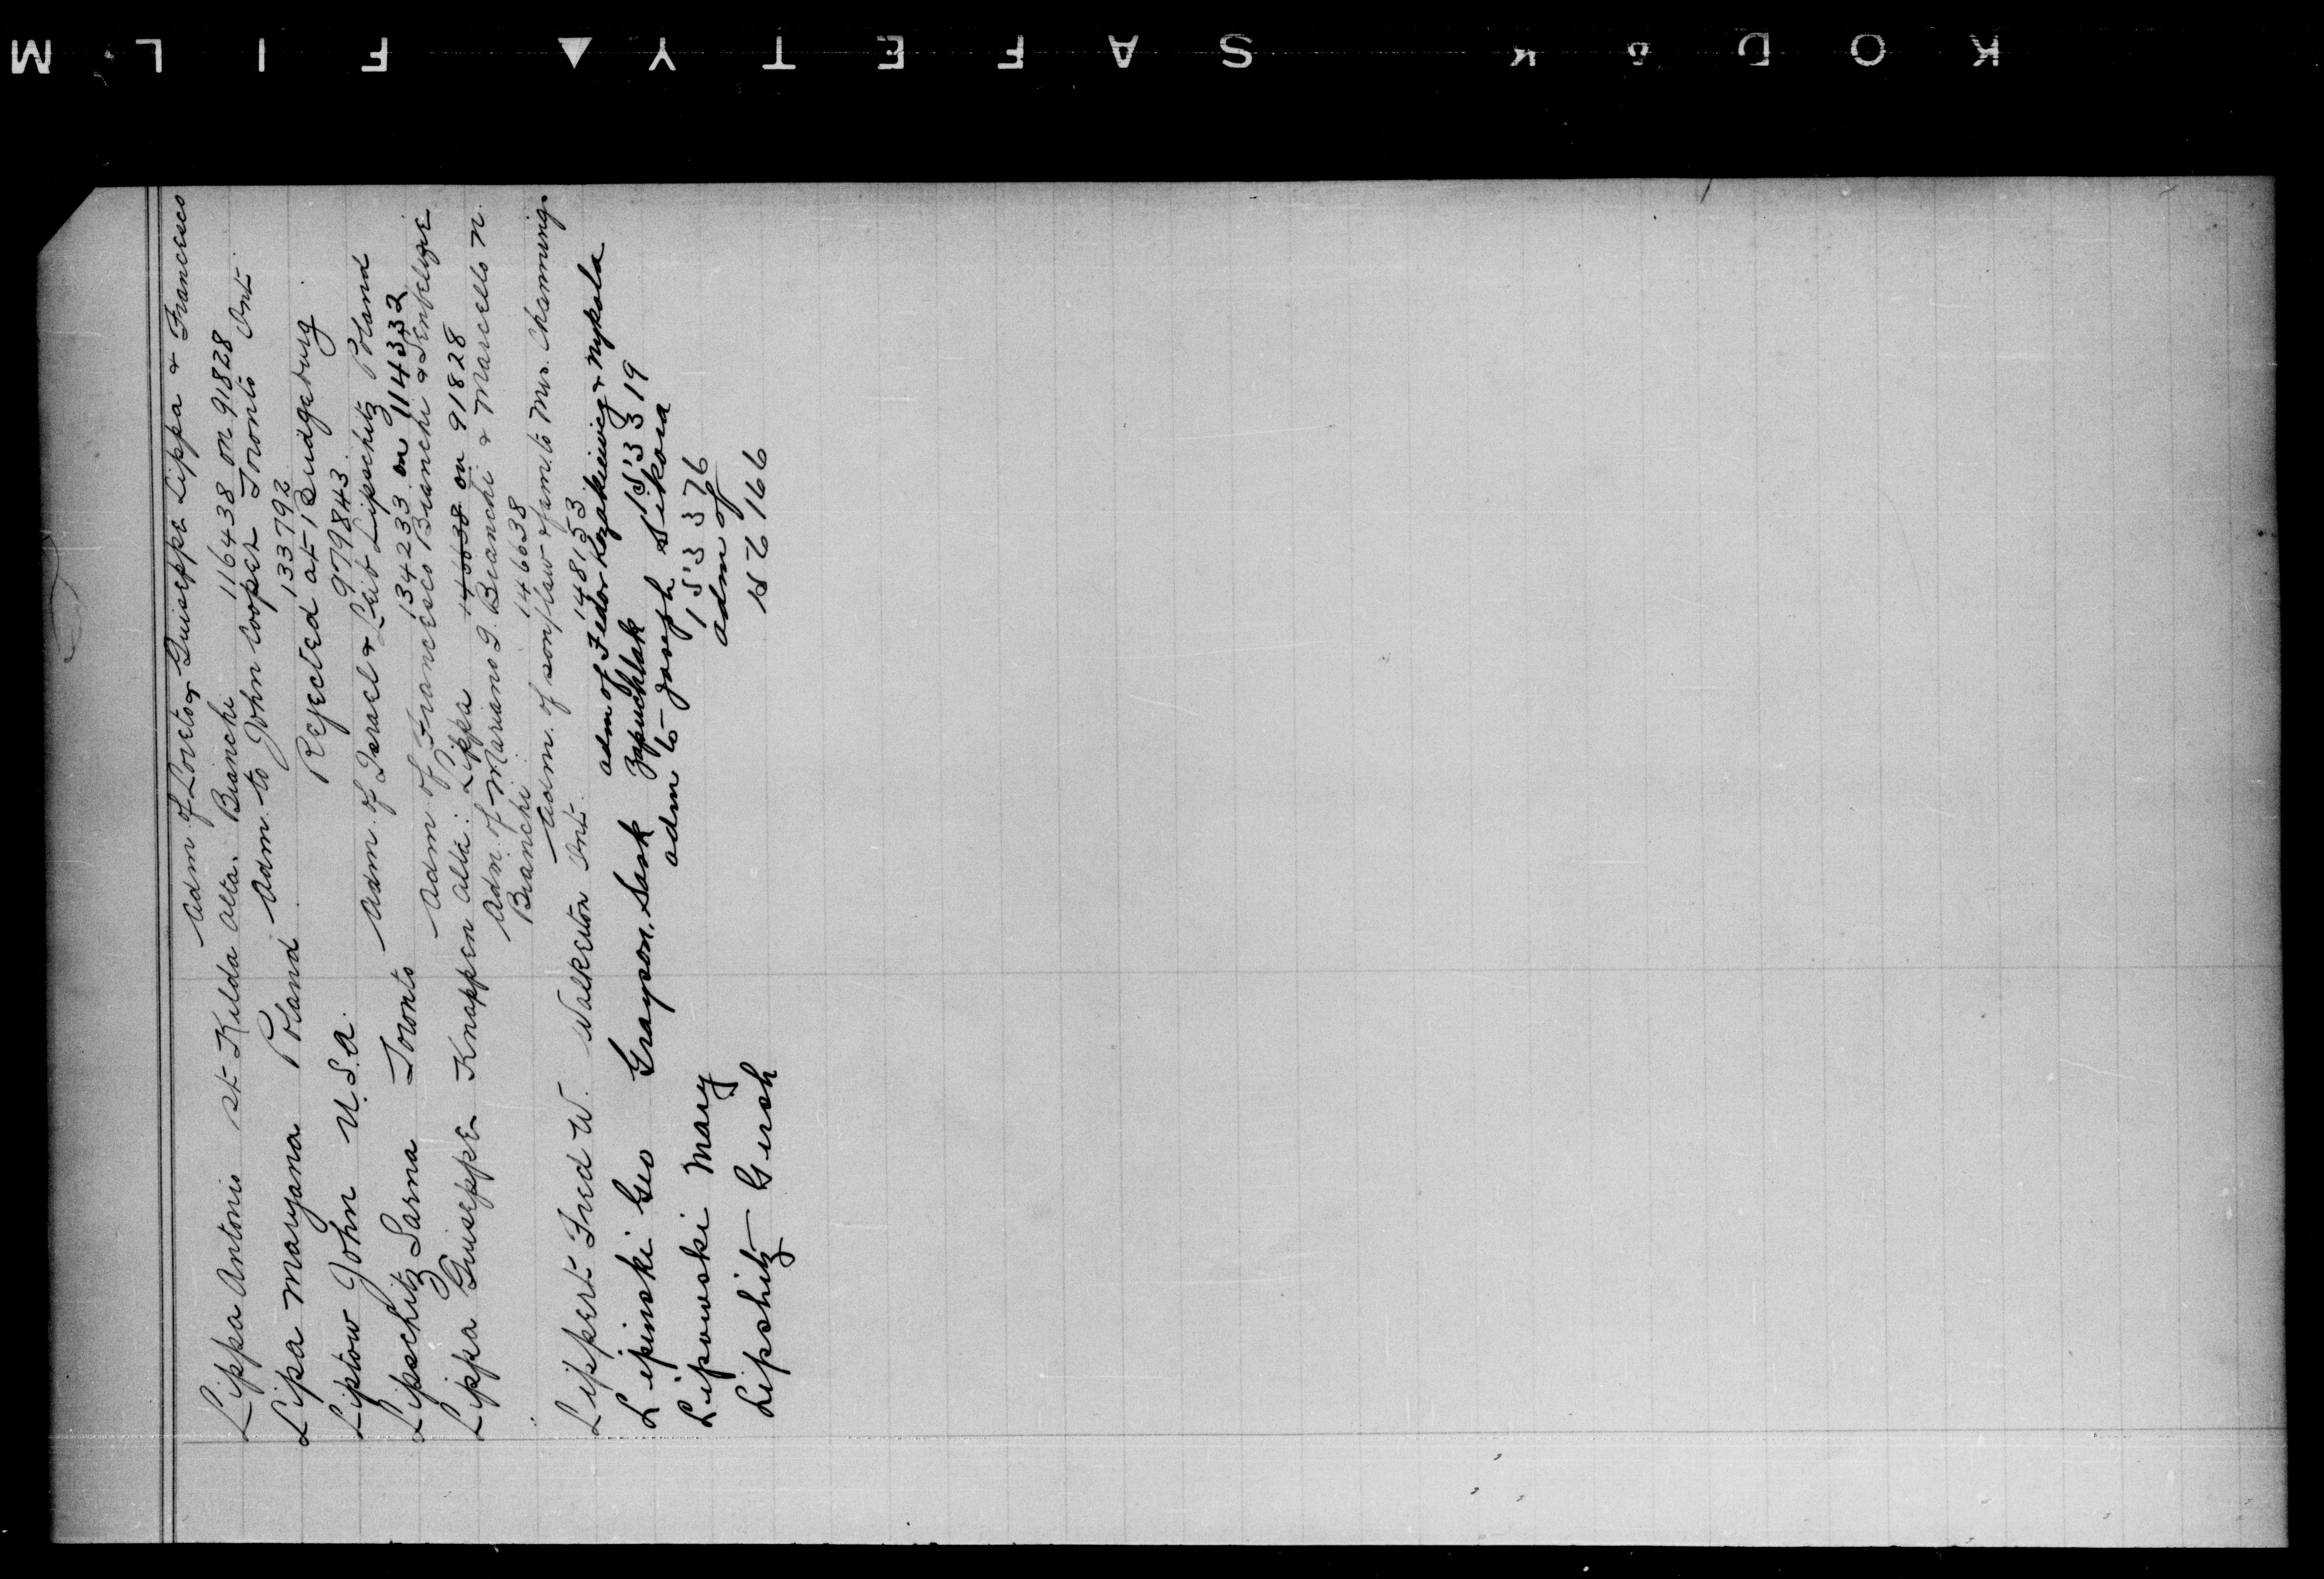 KODAK SAFETY ▲ FILM
Adm. of Loreto & Guiseppe Lippa & Francesco
Lippa Antonio St. Kilda Alta. Bianchi 116438 on 91828
Adm. to John Cooper Toronto Ont.
Lipa Maryana Poland 133792
Rejected at Bridgeburg
Liptow John U.S.A. 979843
Adm. of Israel & Leib Lipschitz Poland
Lipschitz Sarna Toronto 134233 on 114332
Adm. of Francesco Bianchi &
Lippa Guiseppe Knappen Alta: Lippa 146638 on 91828
Adm. of Mariano G. Bianchi & Marcello N.
Bianchi 146638
Adm. of son/law & fam. to Mrs. Channing
Lippert Fred W. Walkerton Ont. 148153
adm of Fedor Kozakiewicz & Nykola
Lipinski Geo Grayson, Sask Zapuchlak 153319
adm to Joseph Sikora
Lipowski Mary 153376
adm of
Lipshitz Gersh 162166